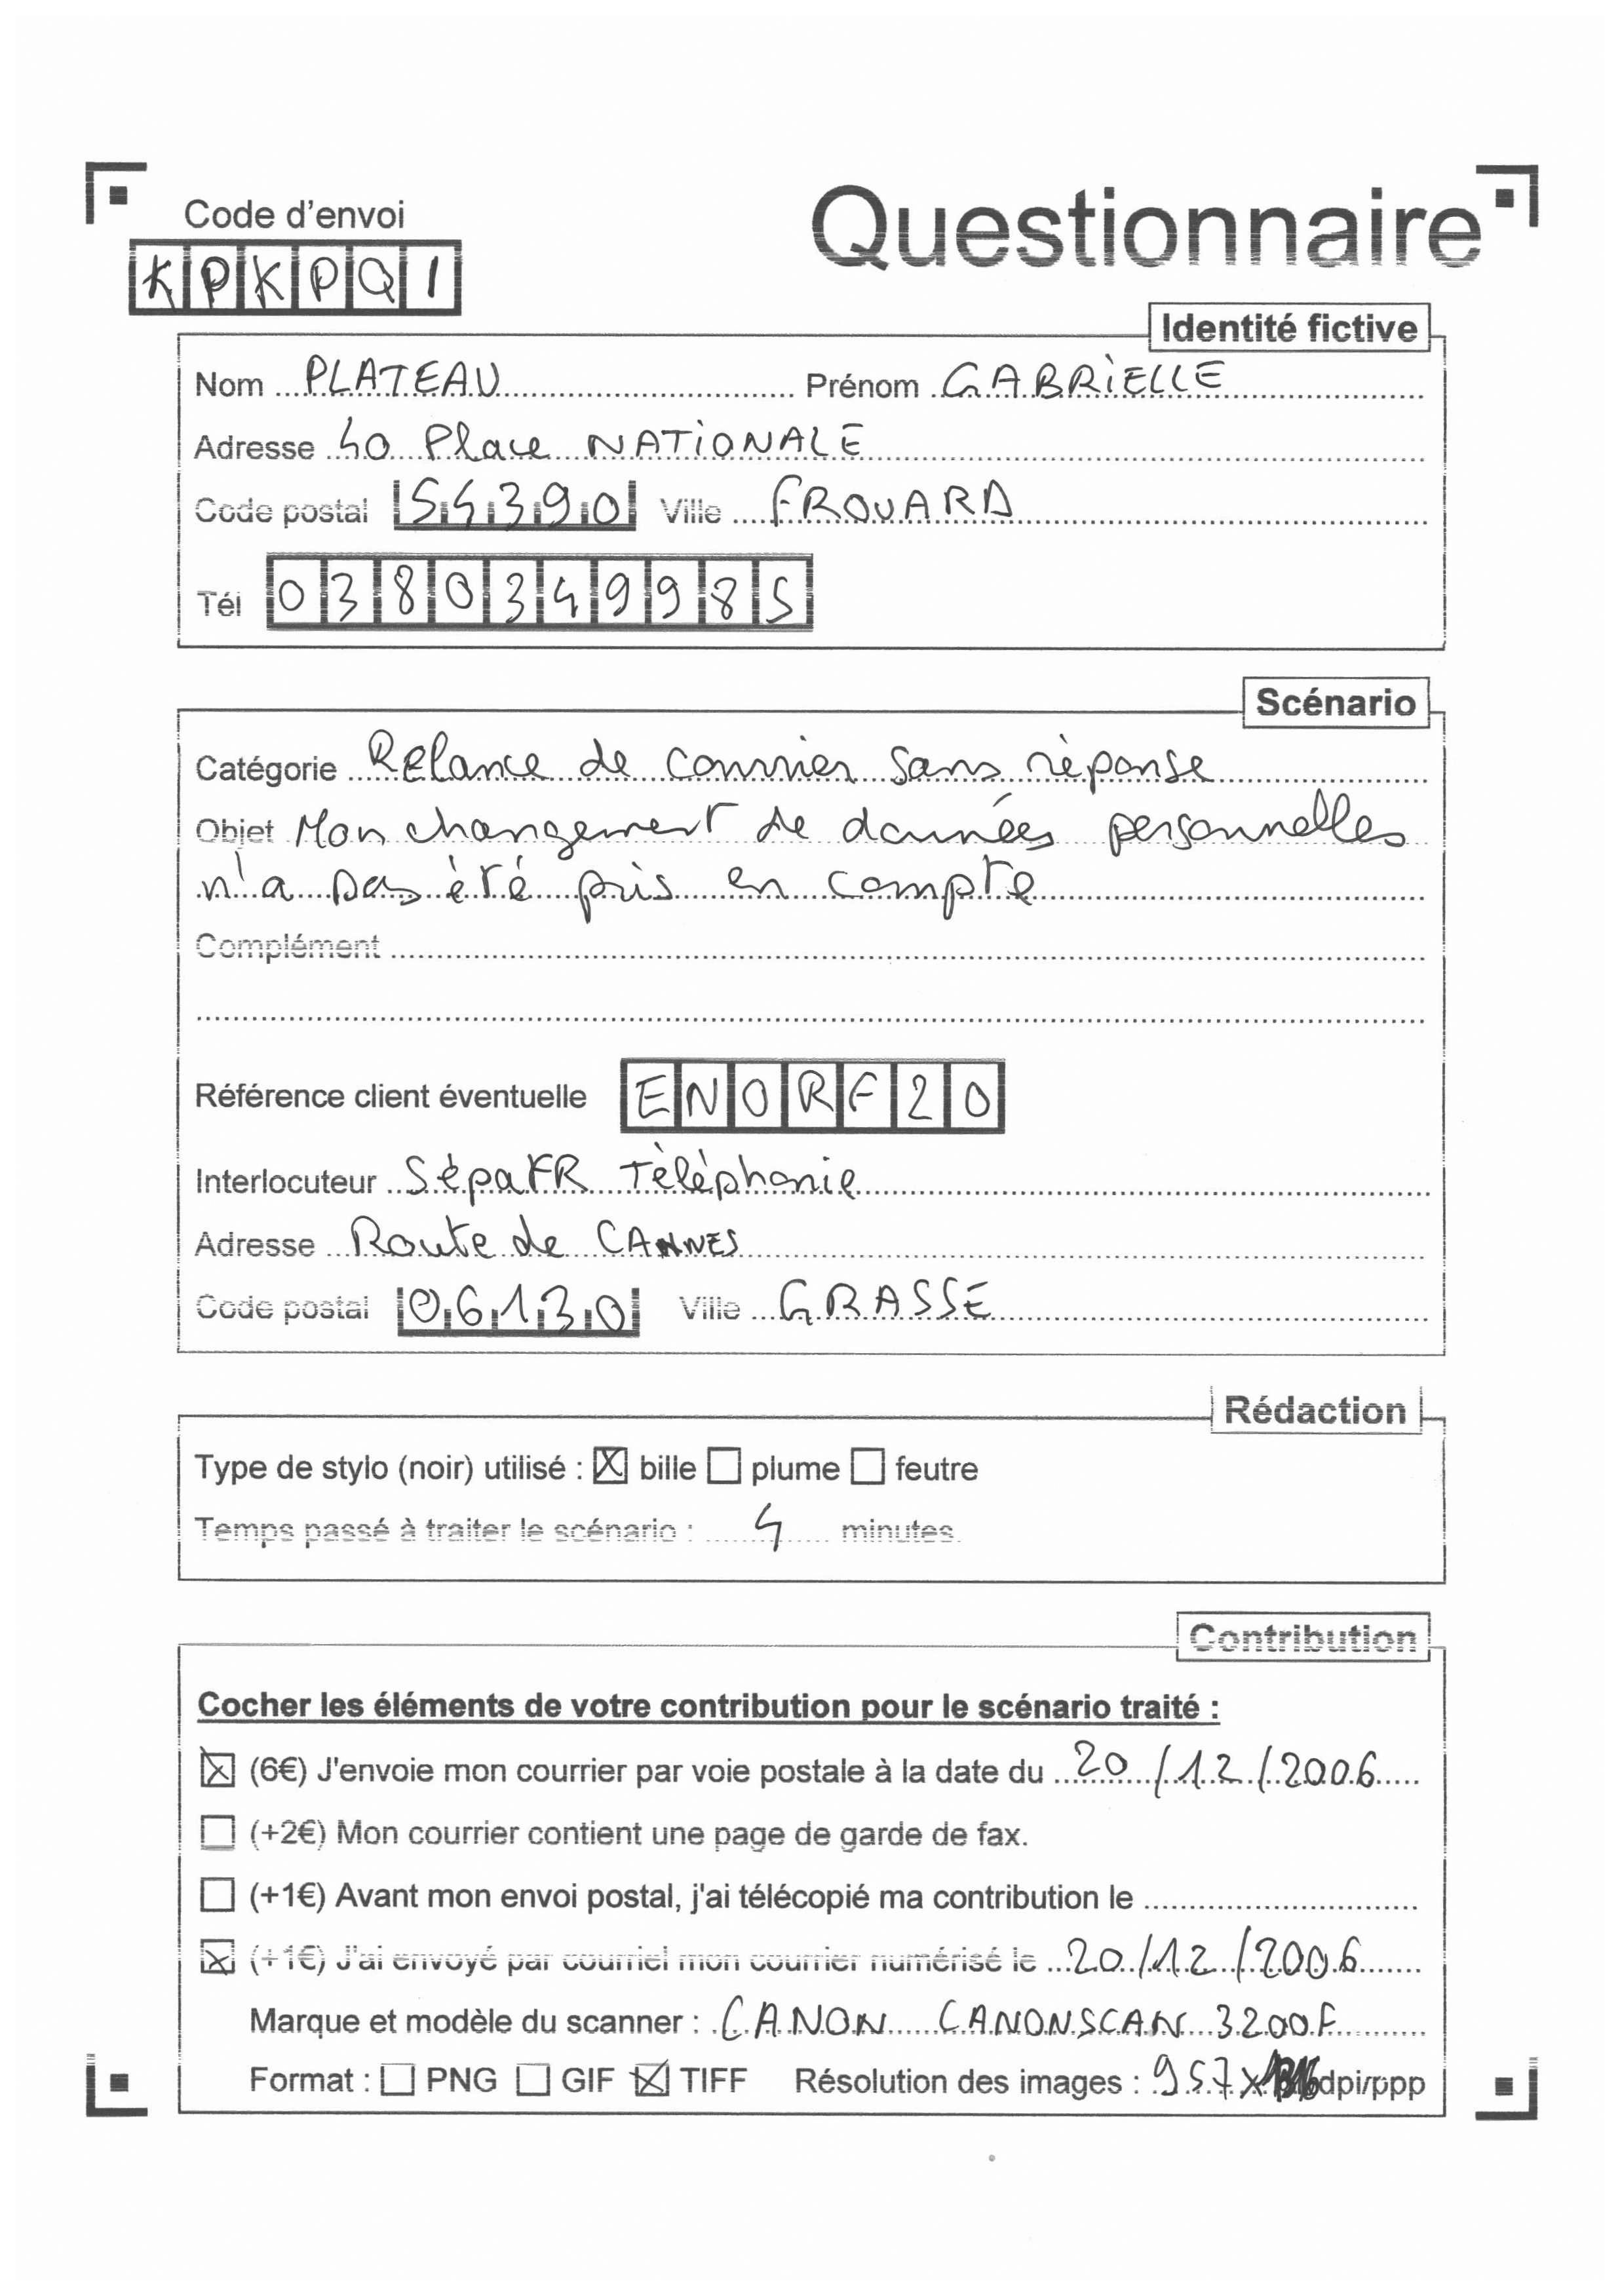 Code d'envoi
Questionnaire
KPKPQ1
Identité fictive
Nom PLATEAU Prénom GABRIELLE
Adresse 40 Place NATIONALE
Code postal 54390 Ville FROUARD
Tél 0380349985
Scénario
Catégorie Relance de courrier sans réponse
Objet Mon changement de données personnelles
n'a pas été pris en compte
Complément
Référence client éventuelle ENORF20
Interlocuteur SépaFR Téléphonie
Adresse Route de CANNES
Code postal 06130 Ville GRASSE
Rédaction
Type de stylo (noir) utilisé : bille plume feutre
Temps passé à traiter le scénario : 4 minutes
Contribution
Cocher les éléments de votre contribution pour le scénario traité :
(6€) J'envoie mon courrier par voie postale à la date du 20/12/2006
(+2€) Mon courrier contient une page de garde de fax.
(+1€) Avant mon envoi postal, j'ai télécopié ma contribution le
(+1€) J'ai envoyé par courriel mon courrier numérisé le 20/12/2006
Marque et modèle du scanner : CANON CANONSCAN 3200F
Format : PNG GIF TIFF Résolution des images : 957 x dpi/ppp